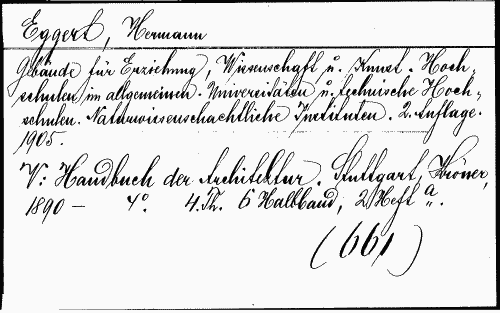 Eggert, Hermann
Gebäude für Erziehung, Wissenschaft u. Kunst. Hoch-
schulen im allgemeinen. Universitäten u. technische Hoch-
schulen. Naturwissenschachtliche Instituten. 2. Auflage.
1905.
V: Handbuch der Architektur. Stuttgart, Kröner,
1890 — 4°. 4. Th. 6 Halbband, 2 Heft a.
(661)